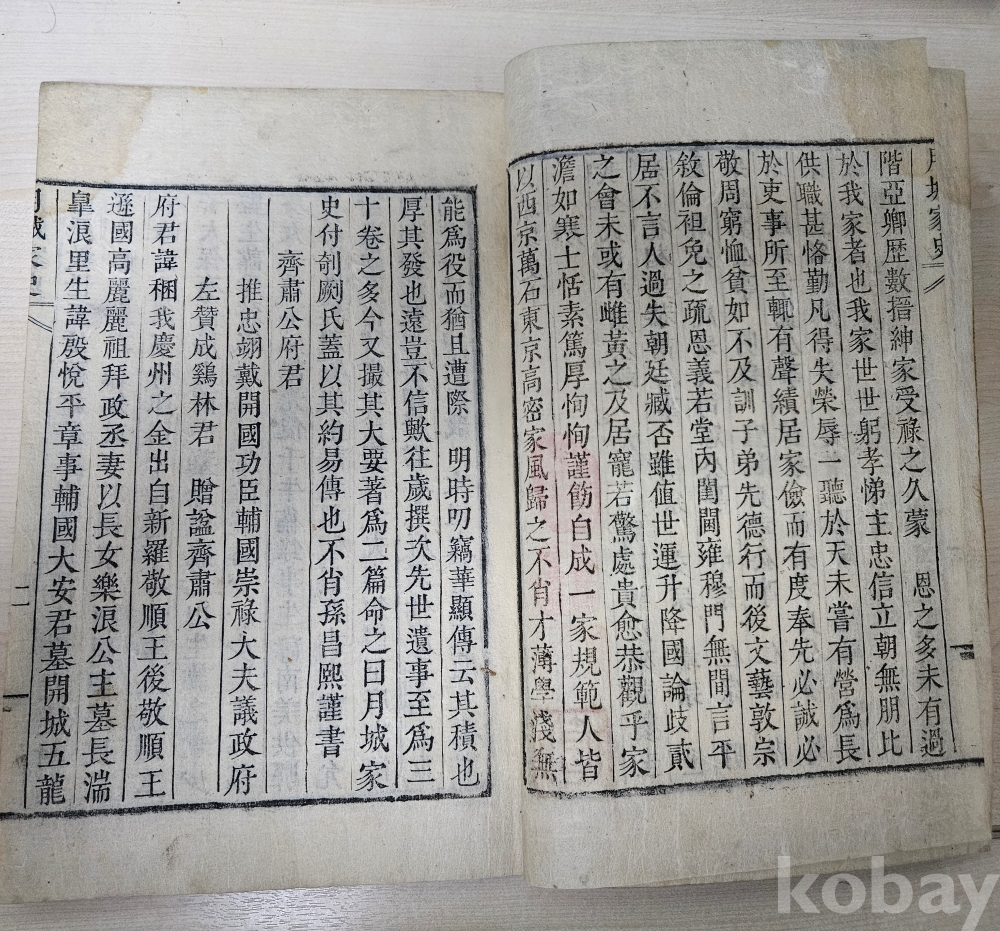 月城家史
階亞卿歷數搢紳家受祿之久蒙 恩之多未有過
於我家者也我家世世躬孝悌主忠信立朝無朋比
供職甚恪勤凡得失榮辱一聽於天未嘗有營爲長
於吏事所至輒有聲績居家儉而有度奉先必誠必
敬周窮恤貧如不及訓子弟先德行而後文藝敦宗
敘倫袒免之疏恩義若堂內閨閫雍穆門無間言平
居不言人過失朝廷臧否雖值世運升降國論歧貳
之會未或有雌黃之及居寵若驚處貴愈恭觀乎家
澹如寒士恬素篤厚恂恂謹飭自成一家規範人皆
以西京萬石東京高密家風歸之不肖才薄學淺無
能爲役而猶且遭際 明時叨竊華顯傳云其積也
厚其發也遠豈不信歟往歲撰次先世遺事至爲三
十卷之多今又撮其大要著爲二篇命之曰月城家
史付剞劂氏蓋以其約易傳也不肖孫昌熙謹書
齊肅公府君
推忠翊戴開國功臣輔國崇祿大夫議政府
左贊成鷄林君 贈諡齊肅公
府君諱稇我慶州之金出自新羅敬順王後敬順王
遜國高麗麗祖拜政丞妻以長女樂浪公主墓長湍
皐浪里生諱殷悅平章事輔國大安君墓開城五龍
月城家史
二
kobay